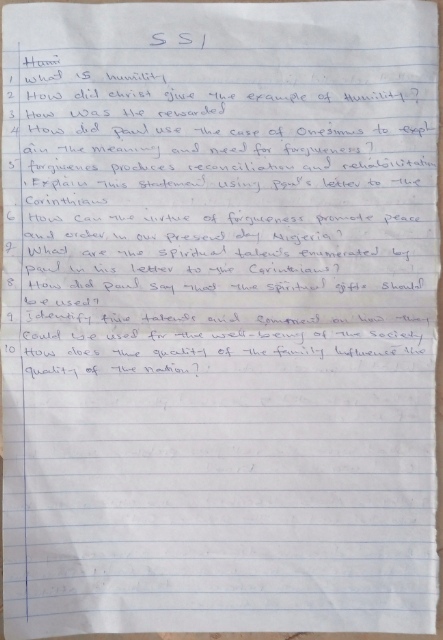 SS1
1 What is humility
2 How did christ give the example of Humility?
3 How was He rewarded
4 How did paul use the case of Onesimus to expl
ain the meaning and need for forgiveness?
5 forgivenes produces reconciliation and rehabilitation
. Explain this statement using paul's letter to the
Corinthians
6 How can the virtue of forgiveness promote peace
and order in our present day Nigeria?
7 What are the spiritual talents enumerated by
paul in his letter to the Corinthians?
8 How did paul say that the spiritual gifts should
be used?
9 Identify five talents and comment on how they
could be used for the well-being of the society
10 How does the quality of the family influence the
quality of the nation?